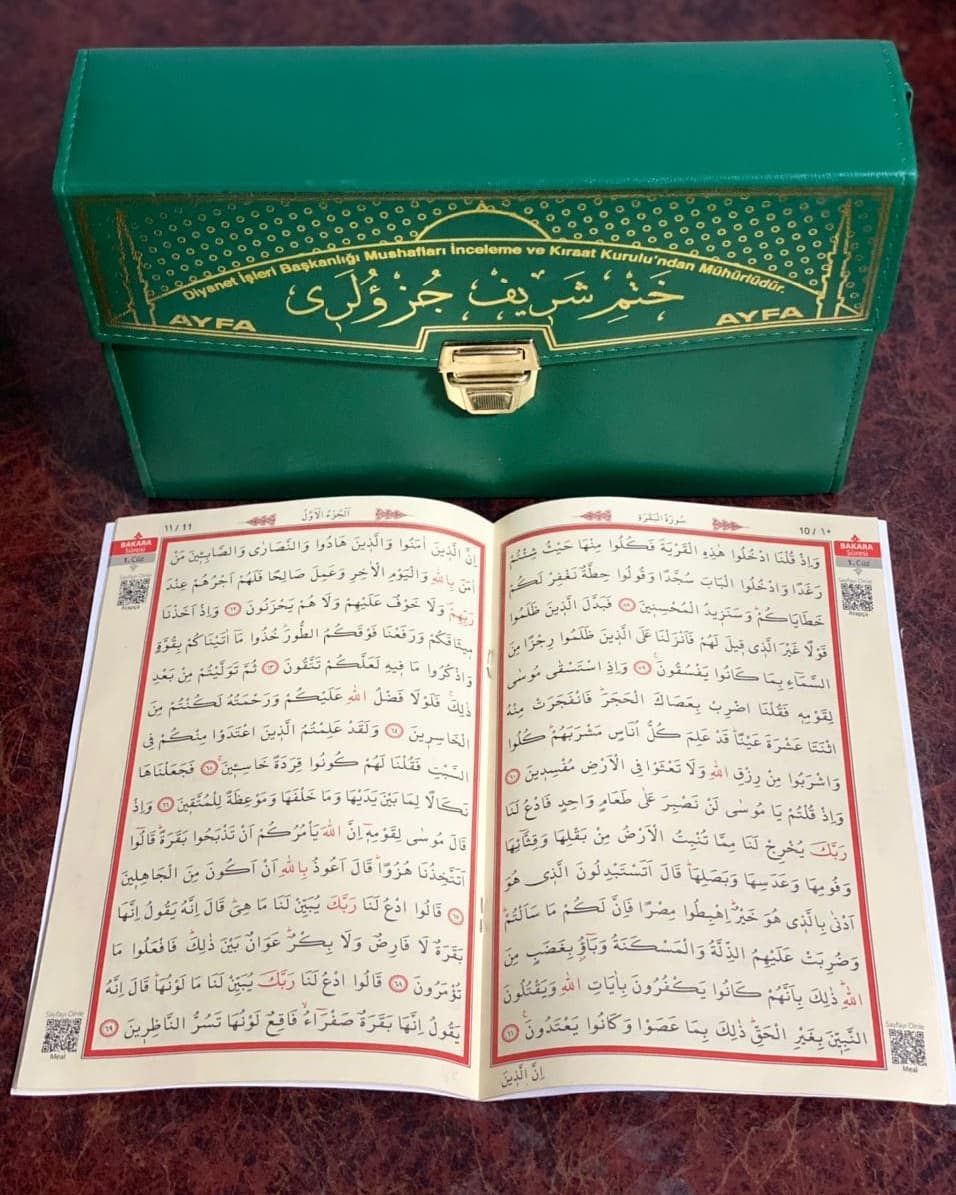 Diyanet İşleri Başkanlığı Mushafları İnceleme ve Kıraat Kurulu'ndan Mühürlüdür.
خَتْمِ شَرِيفْ جُزْؤُلَرِى
AYFA
AYFA
سُورَةُ الْبَقَرَةِ
10 / ١٠
BAKARA
Sûresi
1. Cüz
Sayfayı Dinle
Arapça
وَاِذْ قُلْنَا ادْخُلُوا هٰذِهِ الْقَرْيَةَ فَكُلُوا مِنْهَا حَيْثُ شِئْتُمْ
رَغَدًا وَادْخُلُوا الْبَابَ سُجَّدًا وَقُولُوا حِطَّةٌ نَغْفِرْ لَكُمْ
خَطَايَاكُمْ وَسَنَزِيدُ الْمُحْسِنِينَ ٥٨ فَبَدَّلَ الَّذِينَ ظَلَمُوا
قَوْلًا غَيْرَ الَّذِى قِيلَ لَهُمْ فَاَنْزَلْنَا عَلَى الَّذِينَ ظَلَمُوا رِجْزًا مِنَ
السَّمَاءِ بِمَا كَانُوا يَفْسُقُونَ ٥٩ وَاِذِ اسْتَسْقٰى مُوسٰى
لِقَوْمِهِ فَقُلْنَا اضْرِبْ بِعَصَاكَ الْحَجَرَ فَانْفَجَرَتْ مِنْهُ
اثْنَتَا عَشْرَةَ عَيْنًا قَدْ عَلِمَ كُلُّ اُنَاسٍ مَشْرَبَهُمْ كُلُوا
وَاشْرَبُوا مِنْ رِزْقِ اللّٰهِ وَلَا تَعْثَوْا فِى الْاَرْضِ مُفْسِدِينَ ٦٠
وَاِذْ قُلْتُمْ يَا مُوسٰى لَنْ نَصْبِرَ عَلٰى طَعَامٍ وَاحِدٍ فَادْعُ لَنَا
رَبَّكَ يُخْرِجْ لَنَا مِمَّا تُنْبِتُ الْاَرْضُ مِنْ بَقْلِهَا وَقِثَّائِهَا
وَفُومِهَا وَعَدَسِهَا وَبَصَلِهَا قَالَ اَتَسْتَبْدِلُونَ الَّذِى هُوَ
اَدْنٰى بِالَّذِى هُوَ خَيْرٌ اِهْبِطُوا مِصْرًا فَاِنَّ لَكُمْ مَا سَاَلْتُمْ
وَضُرِبَتْ عَلَيْهِمُ الذِّلَّةُ وَالْمَسْكَنَةُ وَبَاؤُ بِغَضَبٍ مِنَ
اللّٰهِ ذٰلِكَ بِاَنَّهُمْ كَانُوا يَكْفُرُونَ بِاٰيَاتِ اللّٰهِ وَيَقْتُلُونَ
النَّبِيّٖنَ بِغَيْرِ الْحَقِّ ذٰلِكَ بِمَا عَصَوْا وَكَانُوا يَعْتَدُونَ ٦١
اِنَّ الَّذِينَ
Sayfayı Dinle
Meal
11 / ١١
اَلْجُزْءُ الْاَوَّلُ
BAKARA
Sûresi
1. Cüz
Sayfayı Dinle
Arapça
اِنَّ الَّذِينَ اٰمَنُوا وَالَّذِينَ هَادُوا وَالنَّصَارٰى وَالصَّابِـِٔينَ مَنْ
اٰمَنَ بِاللّٰهِ وَالْيَوْمِ الْاٰخِرِ وَعَمِلَ صَالِحًا فَلَهُمْ اَجْرُهُمْ عِنْدَ
رَبِّهِمْ وَلَا خَوْفٌ عَلَيْهِمْ وَلَا هُمْ يَحْزَنُونَ ٦٢ وَاِذْ اَخَذْنَا
مِيثَاقَكُمْ وَرَفَعْنَا فَوْقَكُمُ الطُّورَ خُذُوا مَا اٰتَيْنَاكُمْ بِقُوَّةٍ
وَاذْكُرُوا مَا فِيهِ لَعَلَّكُمْ تَتَّقُونَ ٦٣ ثُمَّ تَوَلَّيْتُمْ مِنْ بَعْدِ
ذٰلِكَ فَلَوْلَا فَضْلُ اللّٰهِ عَلَيْكُمْ وَرَحْمَتُهُ لَكُنْتُمْ مِنَ
الْخَاسِرِينَ ٦٤ وَلَقَدْ عَلِمْتُمُ الَّذِينَ اعْتَدَوْا مِنْكُمْ فِى
السَّبْتِ فَقُلْنَا لَهُمْ كُونُوا قِرَدَةً خَاسِـِٔينَ ٦٥ فَجَعَلْنَاهَا
نَكَالًا لِمَا بَيْنَ يَدَيْهَا وَمَا خَلْفَهَا وَمَوْعِظَةً لِلْمُتَّقِينَ ٦٦ وَاِذْ
قَالَ مُوسٰى لِقَوْمِهِ اِنَّ اللّٰهَ يَاْمُرُكُمْ اَنْ تَذْبَحُوا بَقَرَةً قَالُوا
اَتَتَّخِذُنَا هُزُوًا قَالَ اَعُوذُ بِاللّٰهِ اَنْ اَكُونَ مِنَ الْجَاهِلِينَ
٦٧ قَالُوا ادْعُ لَنَا رَبَّكَ يُبَيِّنْ لَنَا مَا هِىَ قَالَ اِنَّهُ يَقُولُ اِنَّهَا
بَقَرَةٌ لَا فَارِضٌ وَلَا بِكْرٌ عَوَانٌ بَيْنَ ذٰلِكَ فَافْعَلُوا مَا
تُؤْمَرُونَ ٦٨ قَالُوا ادْعُ لَنَا رَبَّكَ يُبَيِّنْ لَنَا مَا لَوْنُهَا قَالَ اِنَّهُ
يَقُولُ اِنَّهَا بَقَرَةٌ صَفْرَاءُ فَاقِعٌ لَوْنُهَا تَسُرُّ النَّاظِرِينَ ٦٩
Sayfayı Dinle
Meal